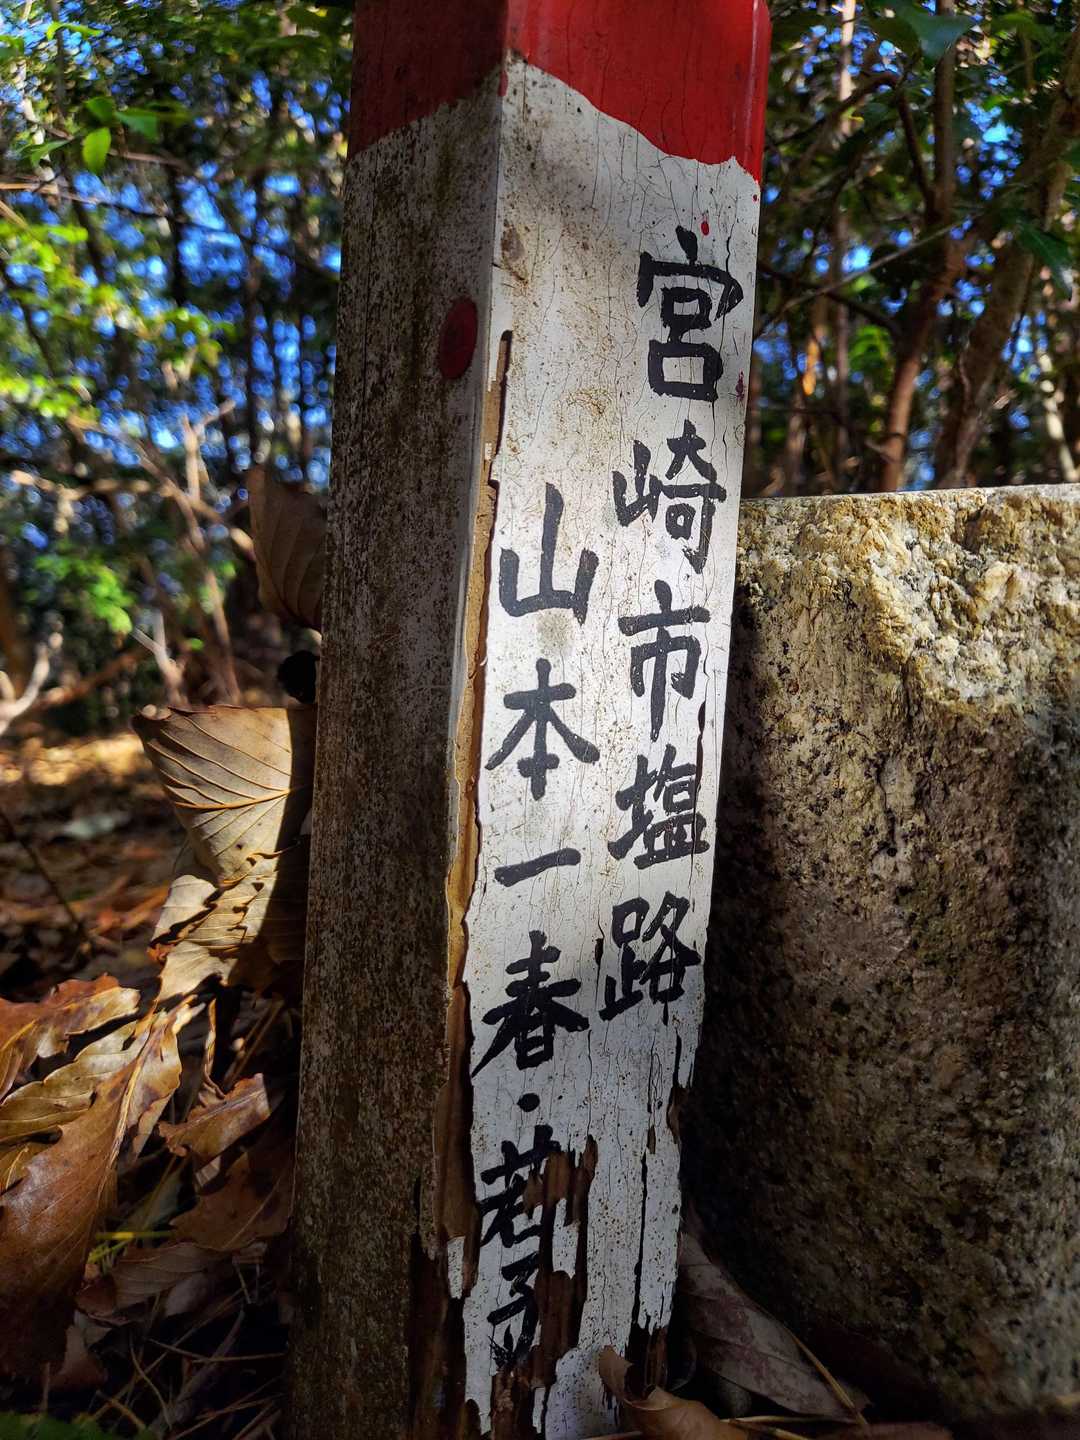 宮崎市塩路
山本一春・若子